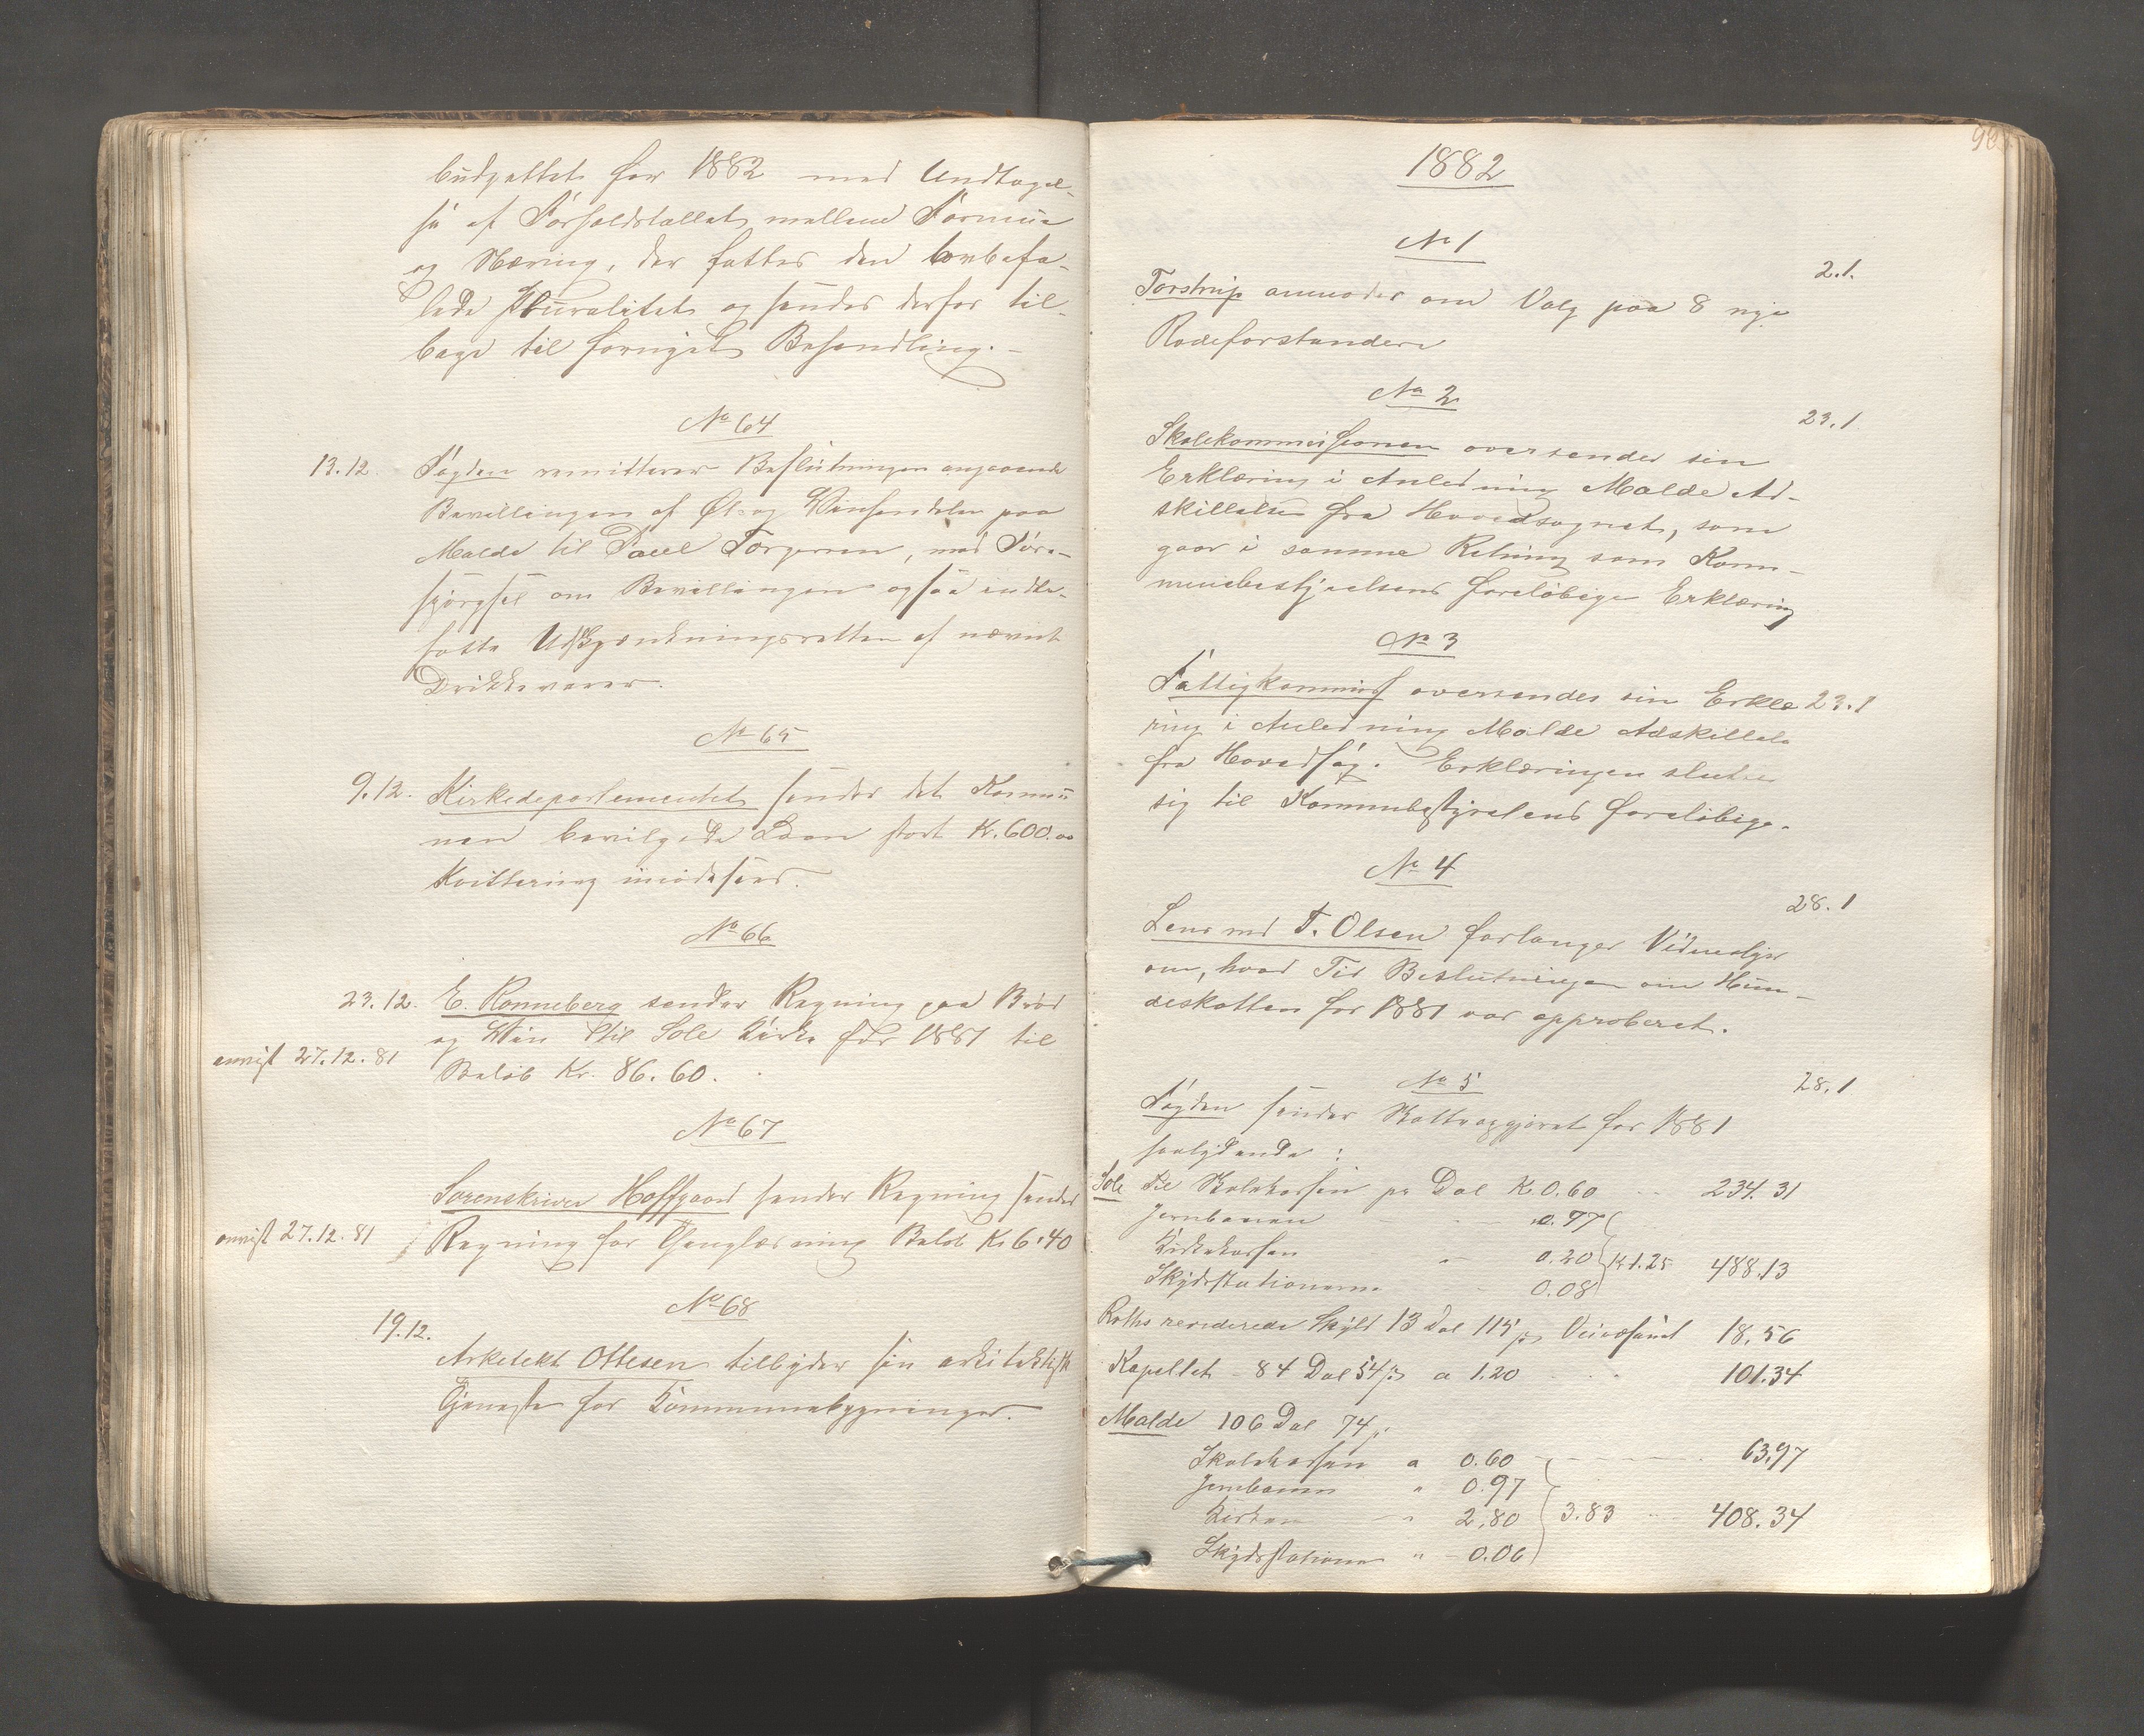 budgettet for 1882 med Undtagel-
se af Forholdstallet mellem Formue
og Næring, der fattes den lovbefa-
lede Pluralitet og sendes derfor til-
bage til fornyet Behandling.
No 64
13.12. Fogden remitterer Beslutningen angaaende
Bevillingen af Øl- og Vinhandelen paa
Malde til Paul Torgersen, med Fore-
spörgsel om Bevillingen ogsaa indbe-
fatte Udskjænkningsretten af nævnte
Drikkevarer.
No 65
9.12. Kirkedepartementet sender det Kommu
nen bevilgede Laan stort Kr. 600.00
Kvittering imødesees.
No 66
23.12. E. Ronneberg sender Regning paa Bröd
og Vin til Sole Kirke for 1881 til
anvist 27.12.81
Belöb Kr. 86.60.
No 67
Sorenskriver Hoffgaard sender Regning sender
anvist 27.12.81 Regning for Thinglæsning Belöb Kr 6.40
No 68
19.12.
Arketekt Ottesen tilbyder sin arkitektisk
Tjeneste for Kommunebygninger.
1882
No 1
2.1.
Torstrup anmoder om Valg paa 8 nye
Rodeforstandere
No 2
23.1
Skolekommissionen oversender sin
Erklæring i Anledning Malde Ad-
skillelse fra Hovedsognet, som
gaar i samme Retning som Kom-
munebestyrelsens foreløbige Erklæring
No 3
Fattigkommis oversender sin Erklæ 23.1
ring i Anledning Malde Adskillels
fra Hovedsog. Erklæringen slutter
sig til Kommubestyrelsens foreløbige.
No 4
28.1
Lensmd T. Olsen forlanger Vidnesbyr
om, hvad Tid Beslutningen om Hun-
deskatten for 1881 var approberet.
No 5
28.1
Fogden sender Skatteopgjøret for 1881
saalydende:
Sole Til Skolekassen pr Dal Kr 0.60 234.31
Jernbanen 0.97
Kirkekassen " 0.20 Kr 1.25 488.13
Skydsstationerne 0.08
Roths reviderede Skyld 13 Dal 115 Veivæsenet 18.56
Kapellet - 84 Dal 54 a 1.20 101.34
Malde 106 Dal 74
Skolekassen a 0.60 63.97
Jernbanen " 0.97
Kirken " 2.80 3.83 408.34
Skydsstationer " 0.06